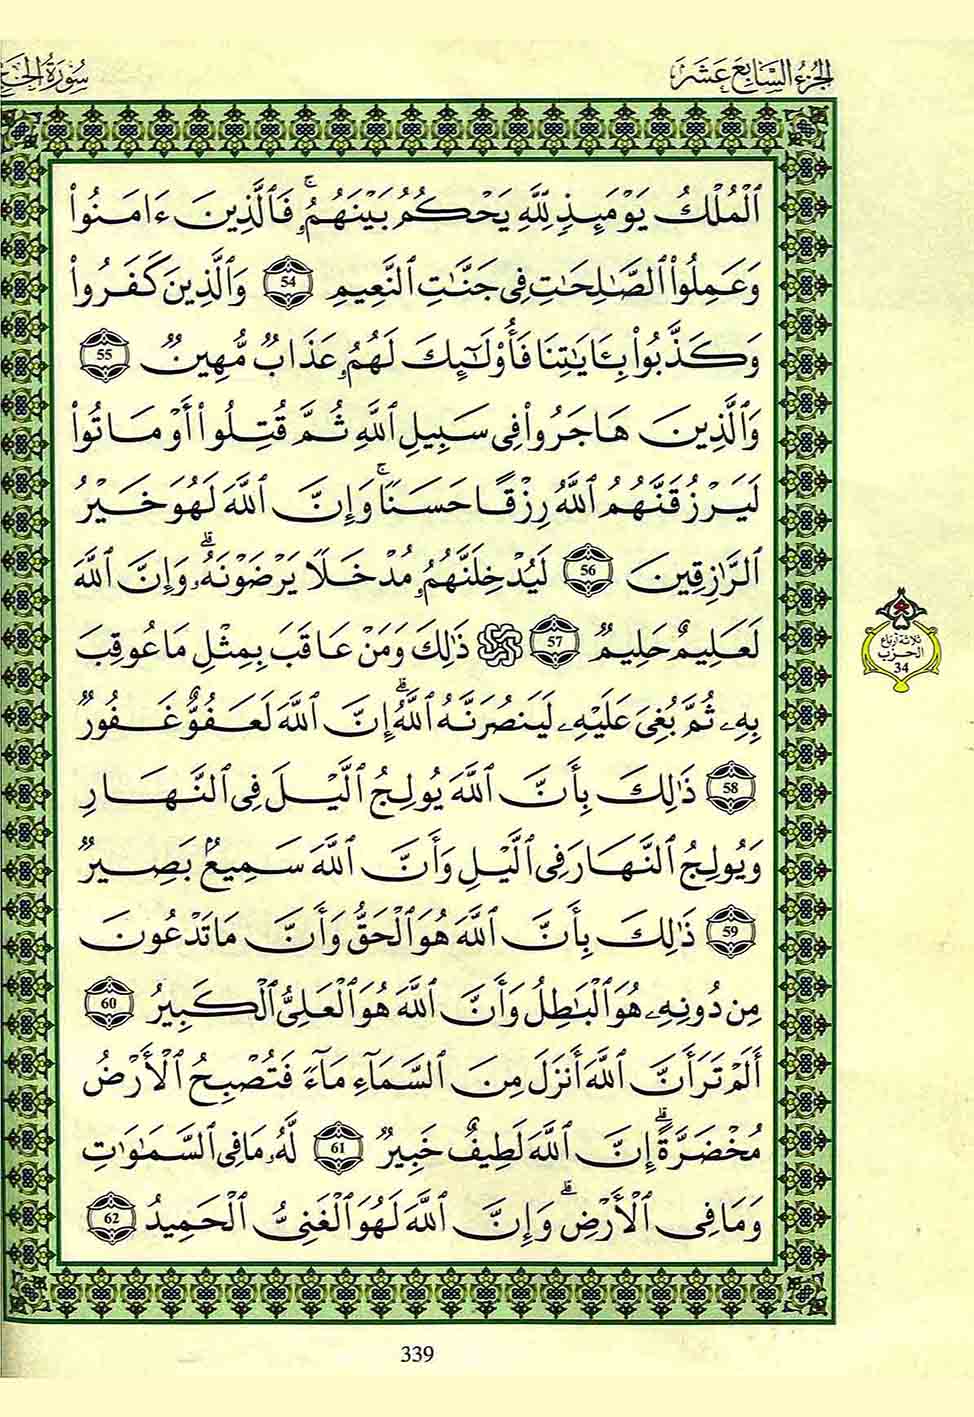 الجزء السابع عشر
سورة الحج
ٱلْمُلْكُ يَوْمَئِذٍ لِّلَّهِ يَحْكُمُ بَيْنَهُمُۥۚ فَٱلَّذِينَ ءَامَنُوا۟
وَعَمِلُوا۟ ٱلصَّٰلِحَٰتِ فِى جَنَّٰتِ ٱلنَّعِيمِ 54 وَٱلَّذِينَ كَفَرُوا۟
وَكَذَّبُوا۟ بِـَٔايَٰتِنَا فَأُو۟لَٰٓئِكَ لَهُمُۥ عَذَابٌ مُّهِينٌ 55
وَٱلَّذِينَ هَاجَرُوا۟ فِى سَبِيلِ ٱللَّهِ ثُمَّ قُتِلُوٓا۟ أَوْ مَاتُوا۟
لَيَرْزُقَنَّهُمُ ٱللَّهُ رِزْقًا حَسَنًاۚ وَإِنَّ ٱللَّهَ لَهُوَ خَيْرُ
ٱلرَّٰزِقِينَ 56 لَيُدْخِلَنَّهُمُۥ مُدْخَلًا يَرْضَوْنَهُۥۗ وَإِنَّ ٱللَّهَ
لَعَلِيمٌ حَلِيمٌ 57 ذَٰلِكَ وَمَنْ عَاقَبَ بِمِثْلِ مَا عُوقِبَ
بِهِۦ ثُمَّ بُغِىَ عَلَيْهِۦ لَيَنصُرَنَّهُ ٱللَّهُۗ إِنَّ ٱللَّهَ لَعَفُوٌّ غَفُورٌ
58 ذَٰلِكَ بِأَنَّ ٱللَّهَ يُولِجُ ٱلَّيْلَ فِى ٱلنَّهَارِ
وَيُولِجُ ٱلنَّهَارَ فِى ٱلَّيْلِ وَأَنَّ ٱللَّهَ سَمِيعٌۢ بَصِيرٌ
59 ذَٰلِكَ بِأَنَّ ٱللَّهَ هُوَ ٱلْحَقُّ وَأَنَّ مَا تَدْعُونَ
مِن دُونِهِۦ هُوَ ٱلْبَٰطِلُ وَأَنَّ ٱللَّهَ هُوَ ٱلْعَلِىُّ ٱلْكَبِيرُ 60
أَلَمْ تَرَ أَنَّ ٱللَّهَ أَنزَلَ مِنَ ٱلسَّمَآءِ مَآءً فَتُصْبِحُ ٱلْأَرْضُ
مُخْضَرَّةًۗ إِنَّ ٱللَّهَ لَطِيفٌ خَبِيرٌ 61 لَّهُۥ مَا فِى ٱلسَّمَٰوَٰتِ
وَمَا فِى ٱلْأَرْضِۗ وَإِنَّ ٱللَّهَ لَهُوَ ٱلْغَنِىُّ ٱلْحَمِيدُ 62
ثلاثة أرباع
الحزب
34
339